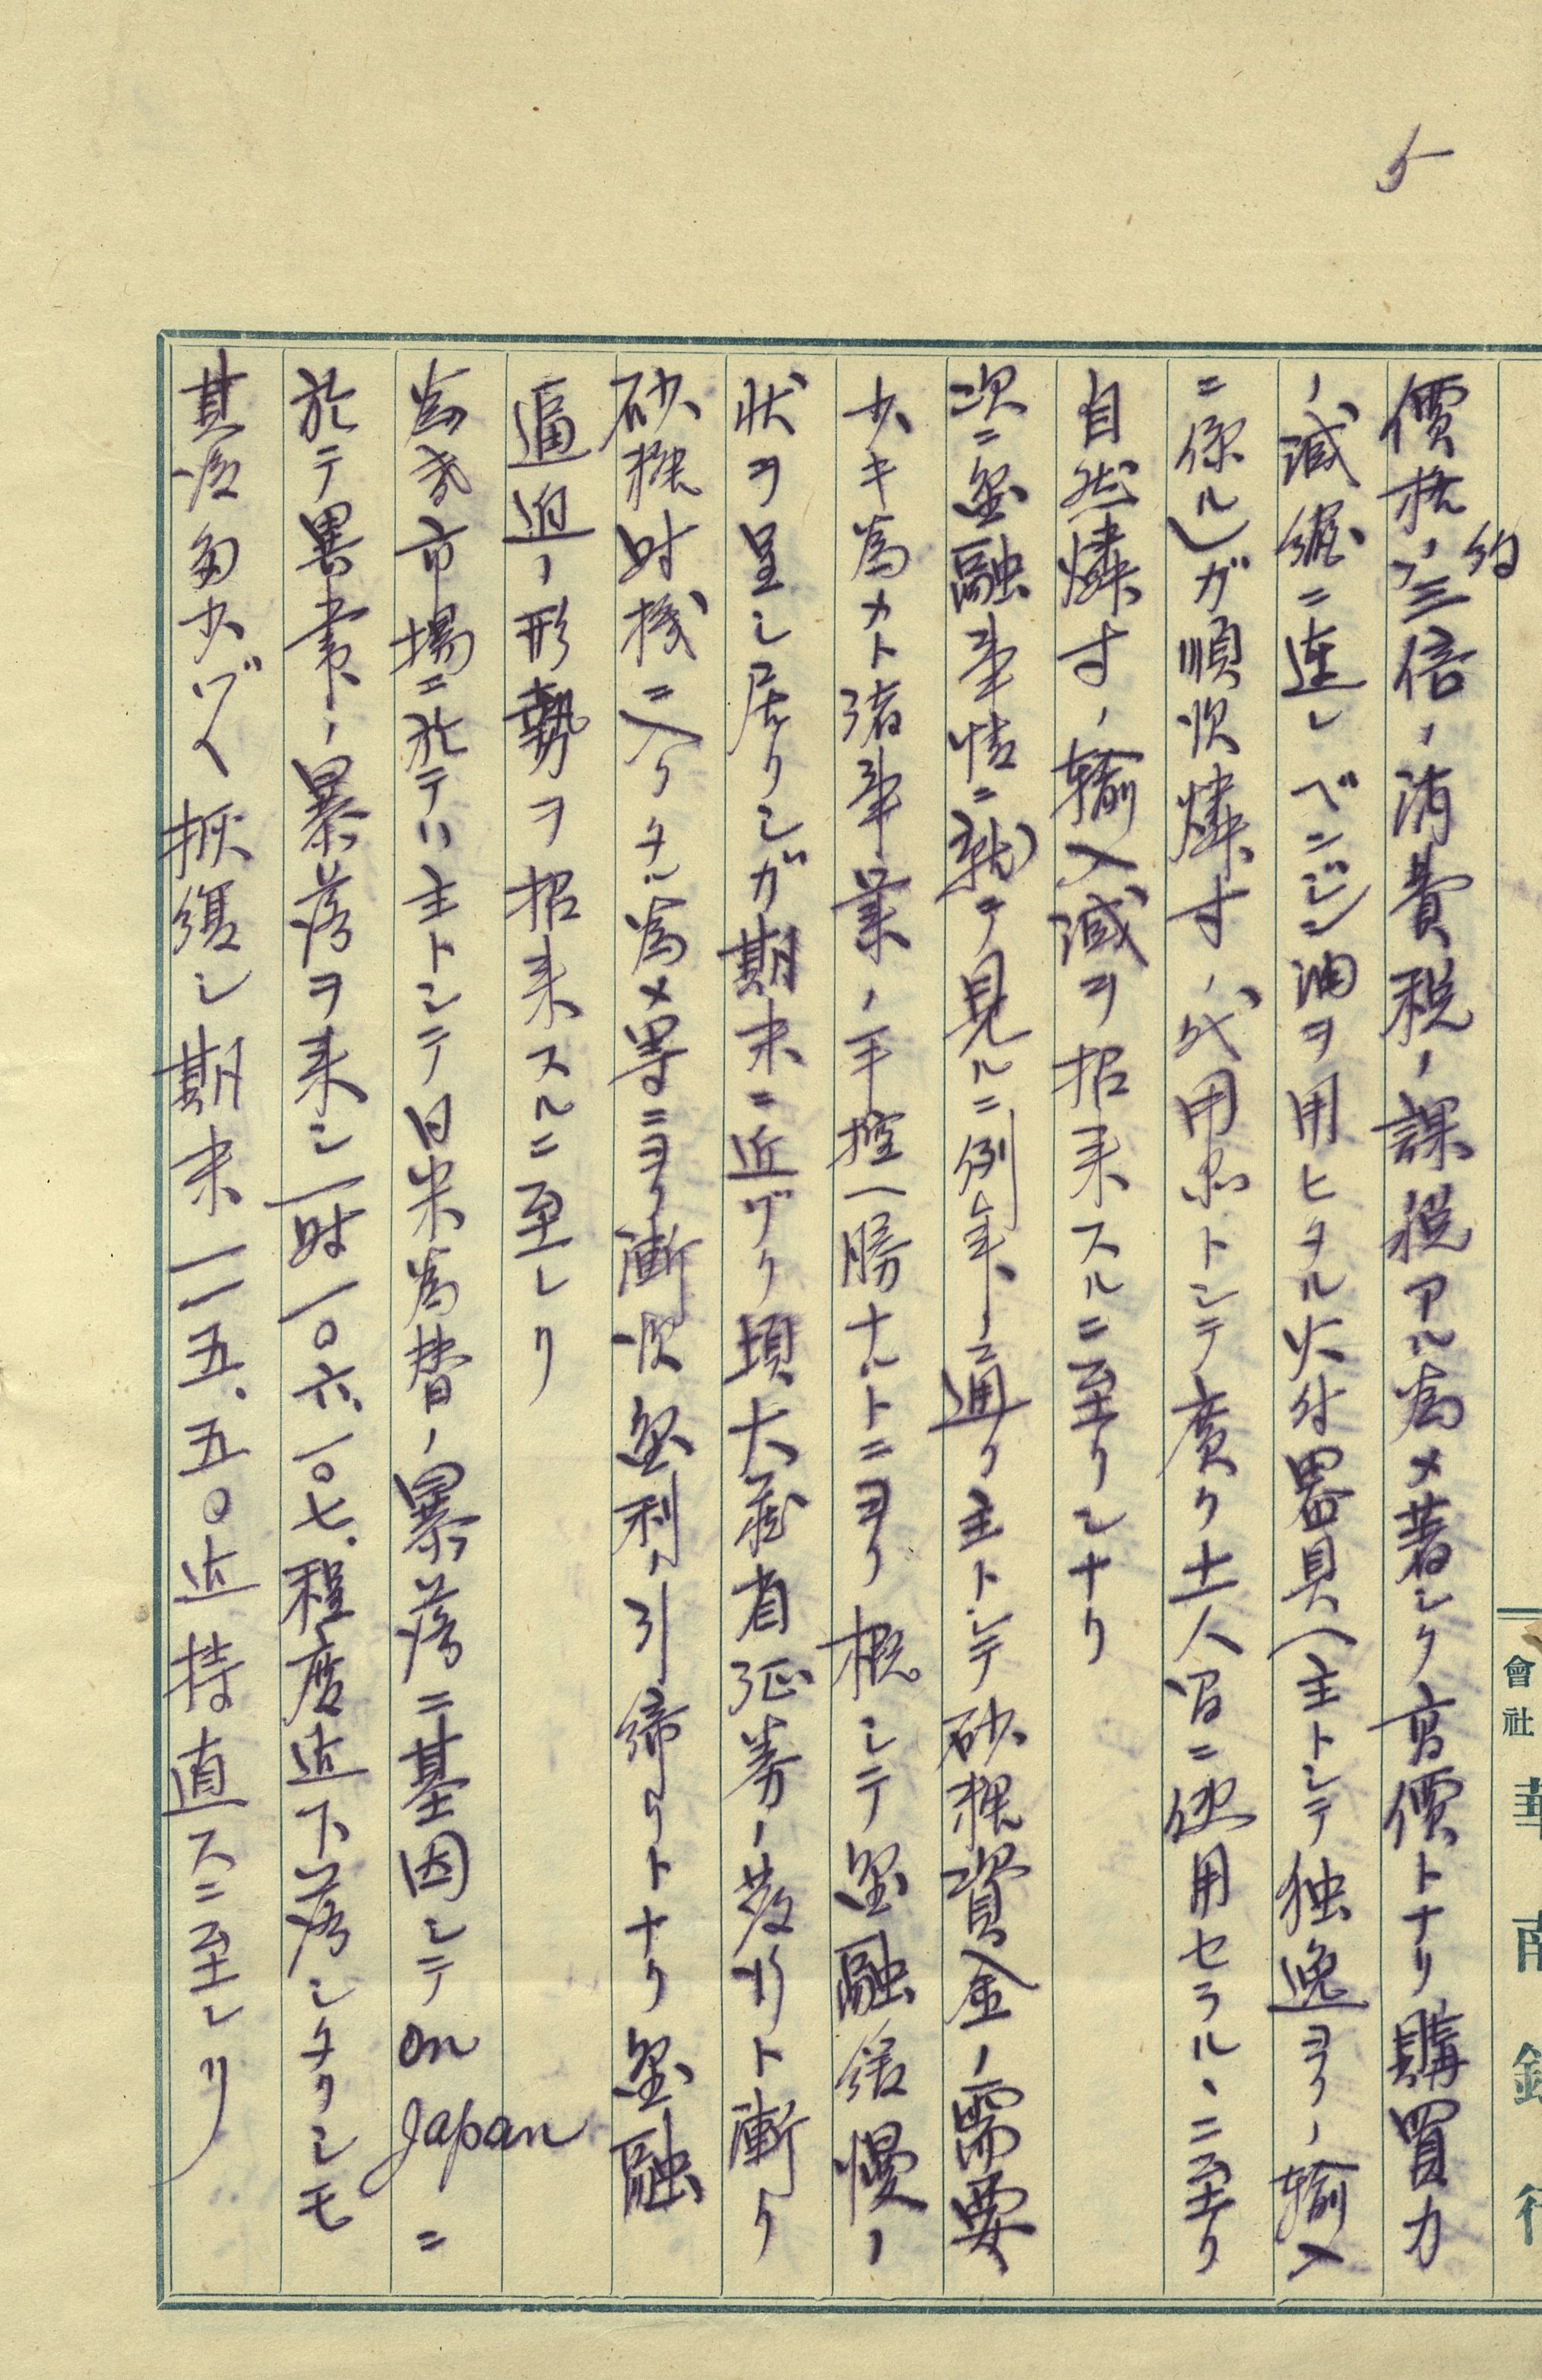 5
會社 華南銀行
約
價格ノ三倍ノ消費税ノ課税アル爲メ著シク高價トナリ購買力
ノ減縮ニ連レベンジン油ヲ用ヒタル火付器具(主トシテ独逸ヨリノ輸入
ニ係ル)ガ順次燐寸ノ代用品トシテ廣ク土人間ニ使用セラルヽニ至リ
自然燐寸ノ輸入減ヲ招来スルニ至リシナリ
次ニ金融事情ニ就テ見ルニ例年ノ通リ主トシテ砂糖資金ノ需要
少キ爲メト諸事業ノ手控ヘ勝ナルトニヨリ概シテ金融緩慢ノ
状ヲ呈シ居リシガ期末ニ近ヅク頃大蔵省証券ノ發行ト漸ク
砂糖時機ニ入リタル爲メ等ニヨリ漸次金利ノ引締リトナリ金融
逼迫ノ形勢ヲ招来スルニ至レリ
爲替市場ニ於テハ主トシテ日米爲替ノ暴落ニ基因シテ on Japan ニ
於テ異常ノ暴落ヲ来シ一時一〇六、一〇七、程度迄下落シタリシモ
其後多少ヅヽ恢復シ期末一一五、五〇迄持直スニ至レリ